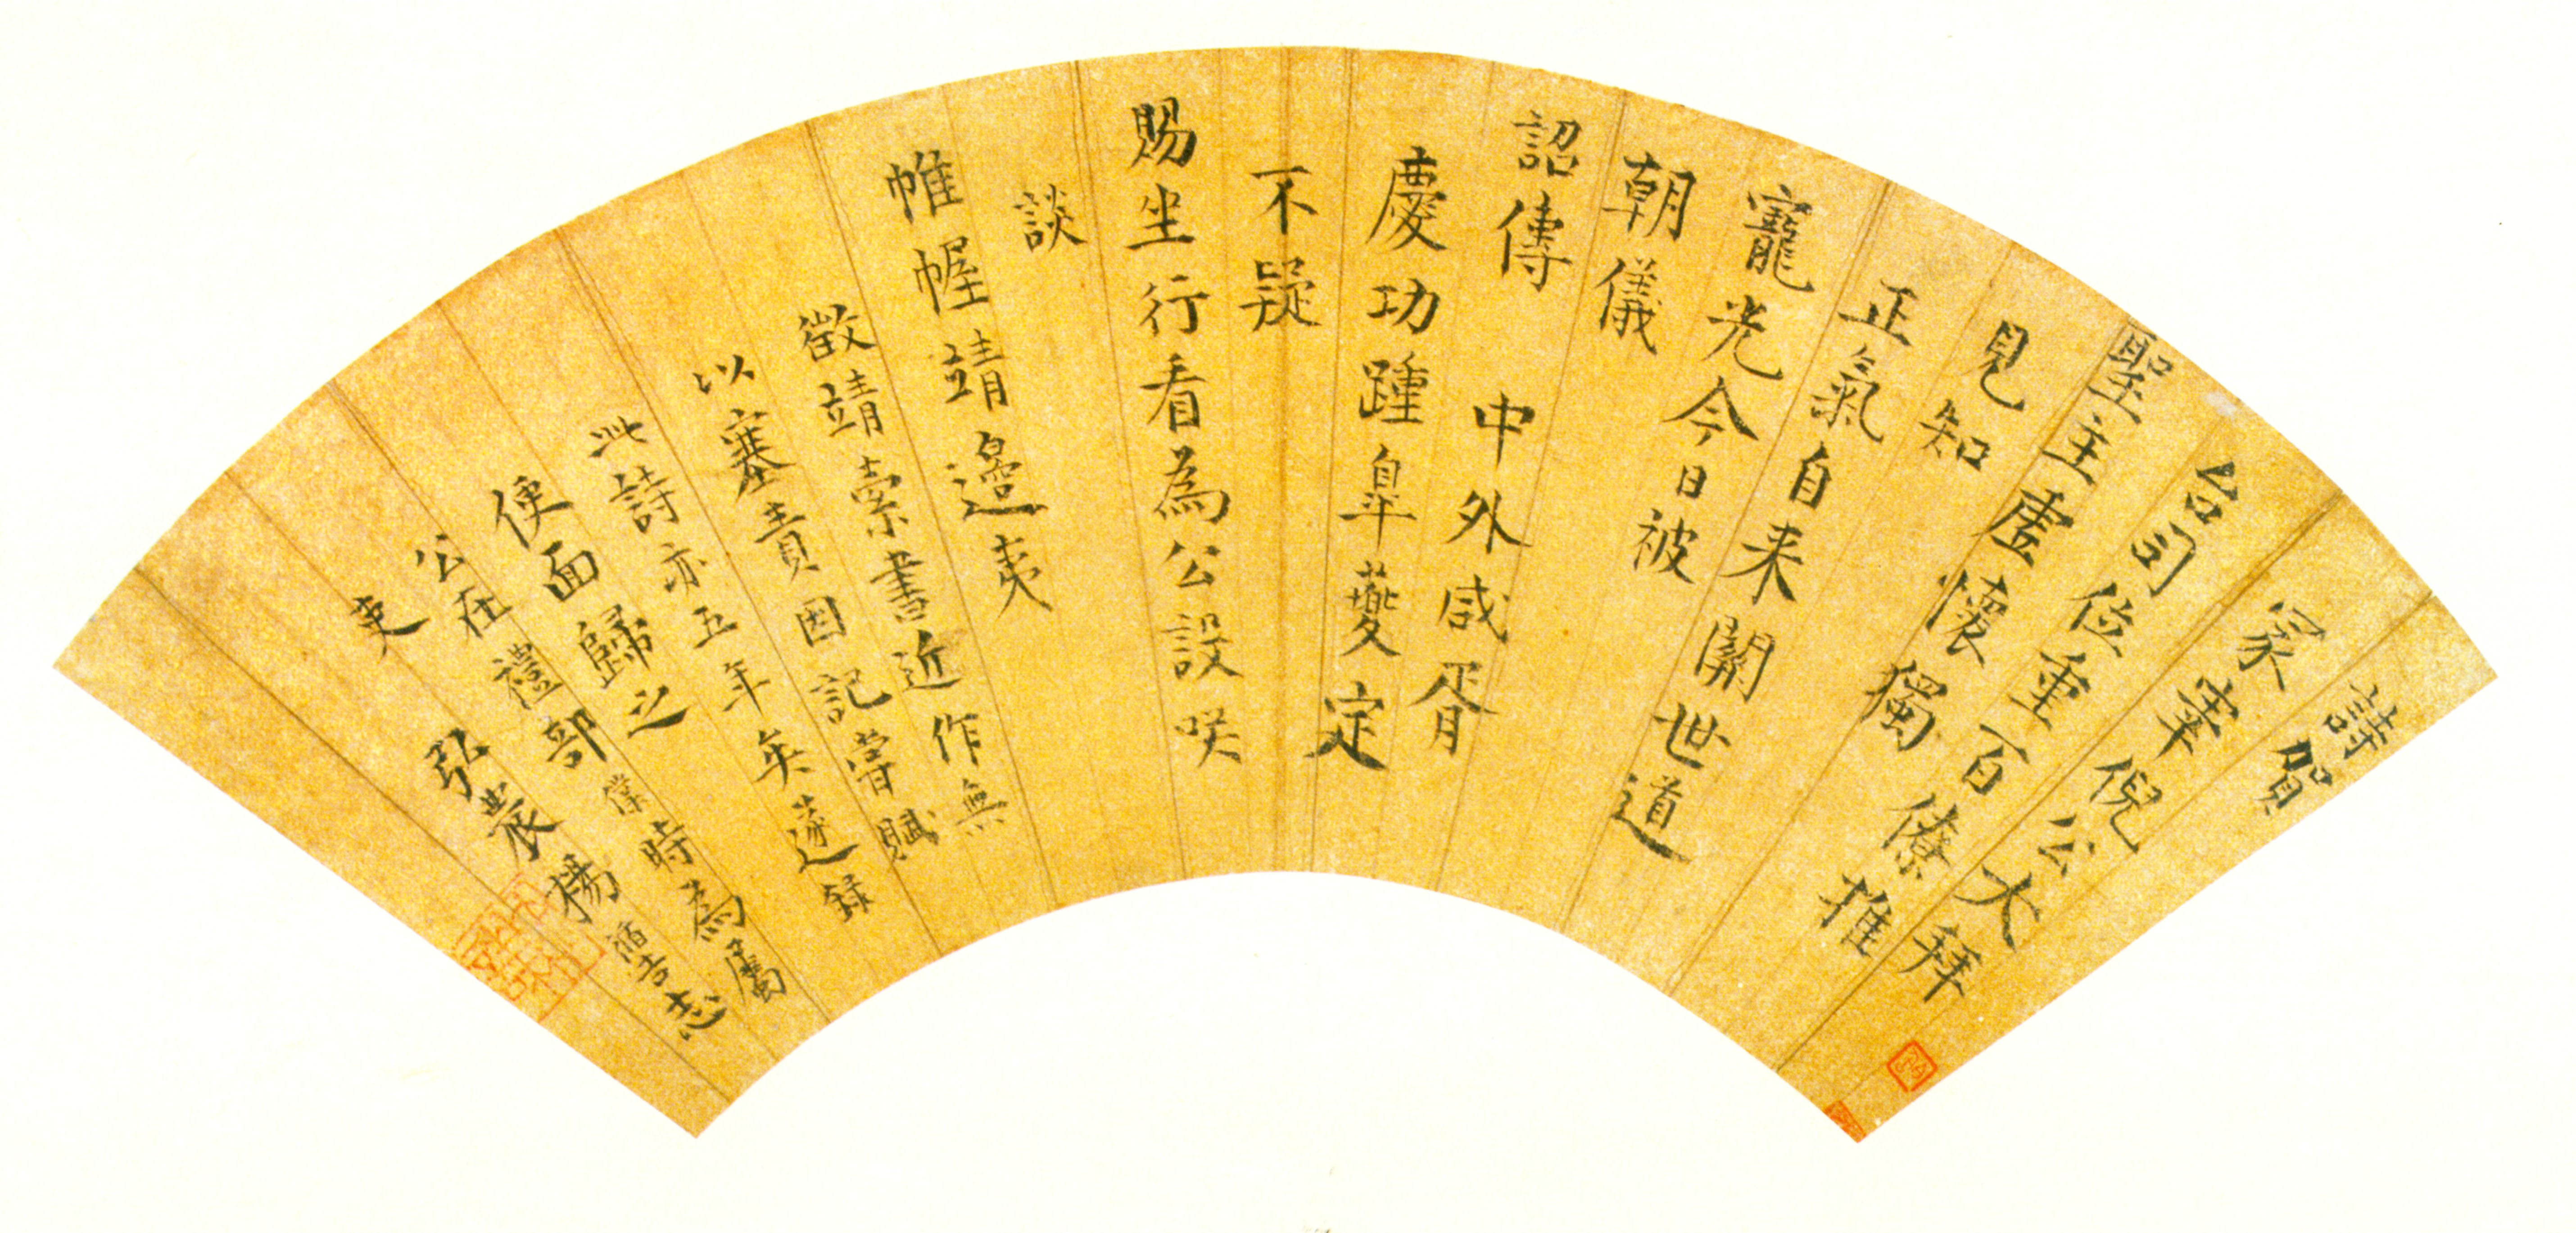 詩賀
冢宰倪公大拜
台司位重百僚推
聖主虛懷獨
見知
正氣自来關世道
寵光今日被
朝儀
詔傳 中外咸胥
慶功踵皐夔定
不疑
賜坐行看為公設咲
談
帷幄靖邊夷
徵靖索書近作無
以塞責因記嘗賦
此詩亦五年矣遂録
便面歸之
公在禮部僕時為屬
吏 弘農楊循吉志